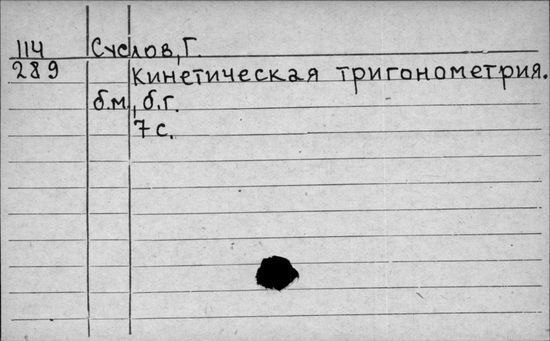 114 Суслов, Г.
289 Кинетическая тригонометрия.
б.м., б.г.
7 с.